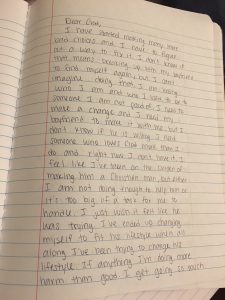 Dear God,
I have started making many more
bad choices and I have to figure
out a way to fix it. I don't know if
that means breaking up with my boyfriend
to find myself again, but I can't
imagine doing that. I am losing
who I am and who I want to be to
someone I am not proud of. I need to
make a change and I need my
boyfriend to make it with me, but I
don't know if he is willing. I need
someone who loves God more than I
do and right now I don't have it. I
feel like I've taken on the burden of
making him a Christian man, but either
I am not doing enough to help him or
it's too big of a task for me to
handle. I just wish it felt like he
was trying. I've ended up changing
myself to fit his lifestyle when all
along I've been trying to change his
lifestyle. If anything I'm doing more
harm than good. I get going so much